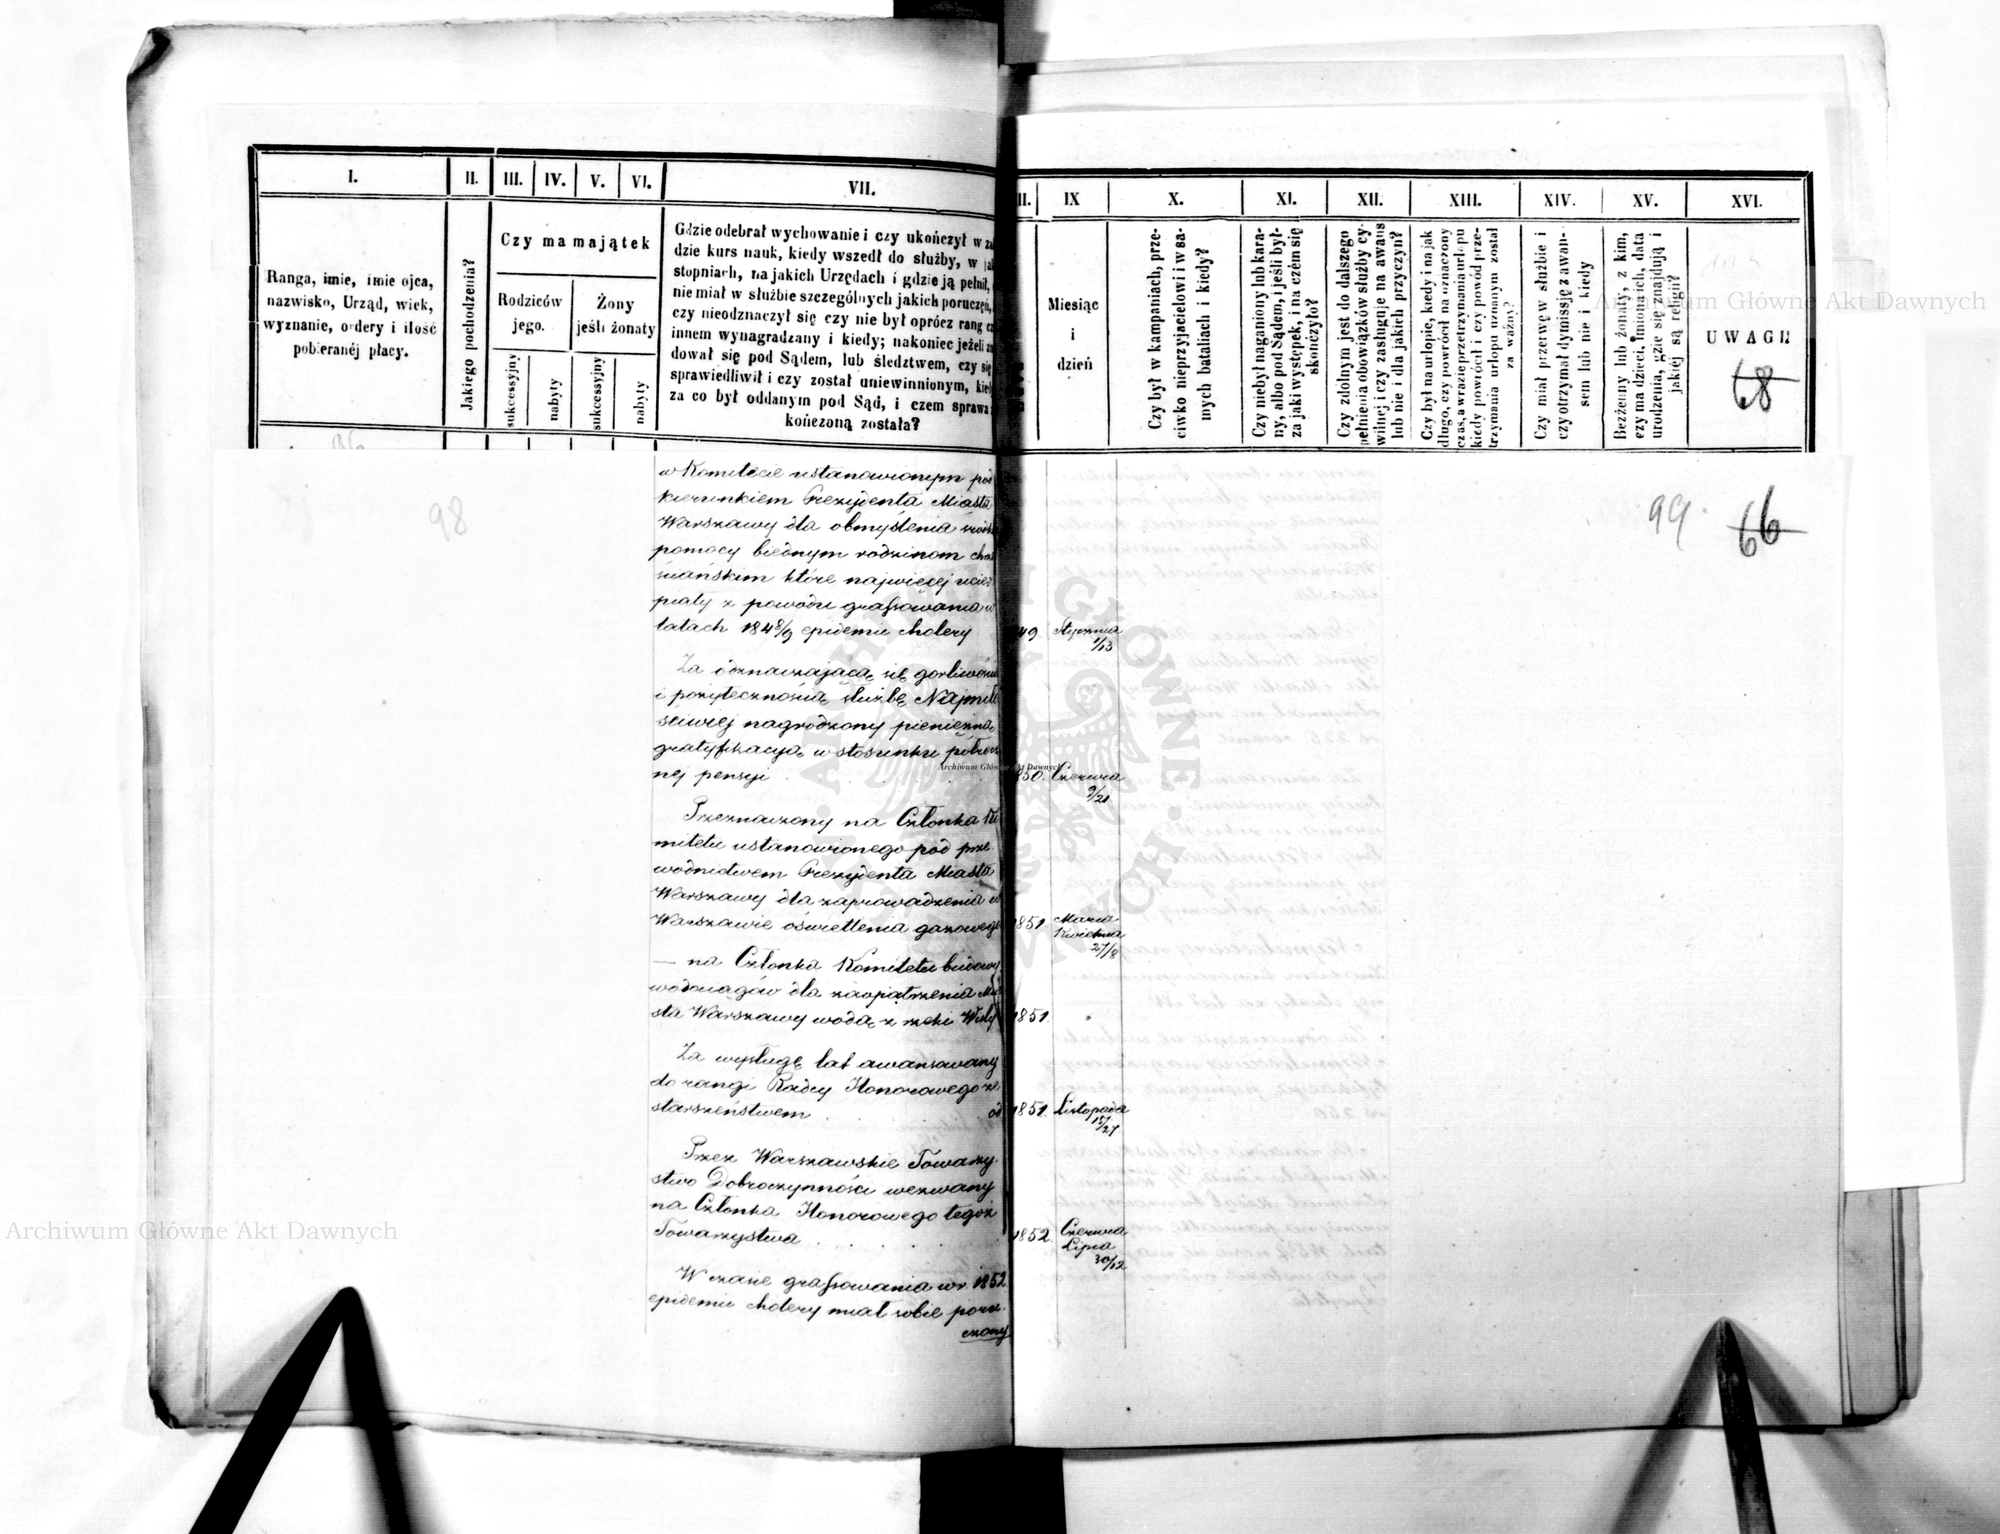 I.
II.
III.
IV.
V.
VI.
VII.
II.
IX
X.
XI.
XII.
XIII.
XIV.
XV.
XVI.
Ranga, imie, imie ojca,
nazwisko, Urząd, wiek,
wyznanie, ordery i ilość
pobieranéj płacy.
Jakiego pochodzenia?
Czy ma majątek
Rodziców
jego.
Żony
jeśli żonaty
sukcessyjny
nabyty
sukcessyjny
nabyty
Gdzie odebrał wychowanie i czy ukończył w za
dzie kurs nauk, kiedy wszedł do służby, w jak
stopniach, na jakich Urzędach i gdzie ją pełnił,
nie miał w służbie szczególnych jakich poruczeń,
czy nieodznaczył się czy nie był oprócz rang cz
innem wynagradzany i kiedy; nakoniec jeżeli zn
dował się pod Sądem, lub śledztwem, czy się
sprawiedliwił i czy został uniewinnionym, kied
za co był oddanym pod Sąd, i czem sprawa
kończoną została?
Miesiąc
i
dzień
Czy był w kampaniach, prze-
ciwko nieprzyjacielowi i w sa-
mych bataliach i kiedy?
Czy niebył naganiony lub kara-
ny, albo pod Sądem, i jeśli był-
za jaki występek, i na czém się
skończyło?
Czy zdolnym jest do dalszego
pełnienia obowiązków służby cy-
wilnej i czy zasługuje na awans
lub nie i dla jakich przyczyn?
Czy był na urlopie, kiedy i na jak
długo, czy powrócił na oznaczony
czas, a w razie przetrzymania urlopu
kiedy powrócił i czy powód prze-
trzymania urlopu uznanym został
za ważny?
Czy miał przerwę w służbie i
czy otrzymał dymissję z awan-
sem lub nie i kiedy
Bezżenny lub żonaty, z kim,
czy ma dzieci, imiona ich, data
urodzenia, gdzie się znajdują i
jakiéj są religii?
UWAGI
68
98
99
66
w Komitecie ustanowionym pod
kierunkiem Prezydenta Miasta
Warszawy dla obmyślenia
pomocy biednym rodzinom chrze
ściańskim które najwięcej ucier
piały z powodu grassowania w
latach 1848/9 epidemii cholery
49 Stycznia
1/13
Za odznaczającą się gorliwością
i pożytecznością służbę Najmiło
ściwiej nagrodzony pieniężną
gratyfikacyą w stosunku półrocz
nej pensyi
850. Czerwca
9/21
Przeznaczony na Członka Ko
mitetu ustanowionego pod prze
wodnictwem Prezydenta Miasta
Warszawy dla zaprowadzenia w
Warszawie oświetlenia gazowego
1851 Marca
Kwietnia
27/8
— na Członka Komitetu budowy
wodociągów dla zaopatrzenia Mia
sta Warszawy wodą z rzeki Wisły
1851 "
Za wysługę lat awansowany
do rangi Radcy Honorowego ze
starszeństwem od
1851 Listopada
15/27
Przez Warszawskie Towarzy-
stwo Dobroczynności wezwany
na Członka Honorowego tegoż
Towarzystwa
1852 Czerwca
Lipca
30/12
W czasie grassowania w r. 1852
epidemii cholery miał sobie poru-
czony
Archiwum Główne Akt Dawnych
Archiwum Główne Akt Dawnych
Archiwum Główne Akt Dawnych